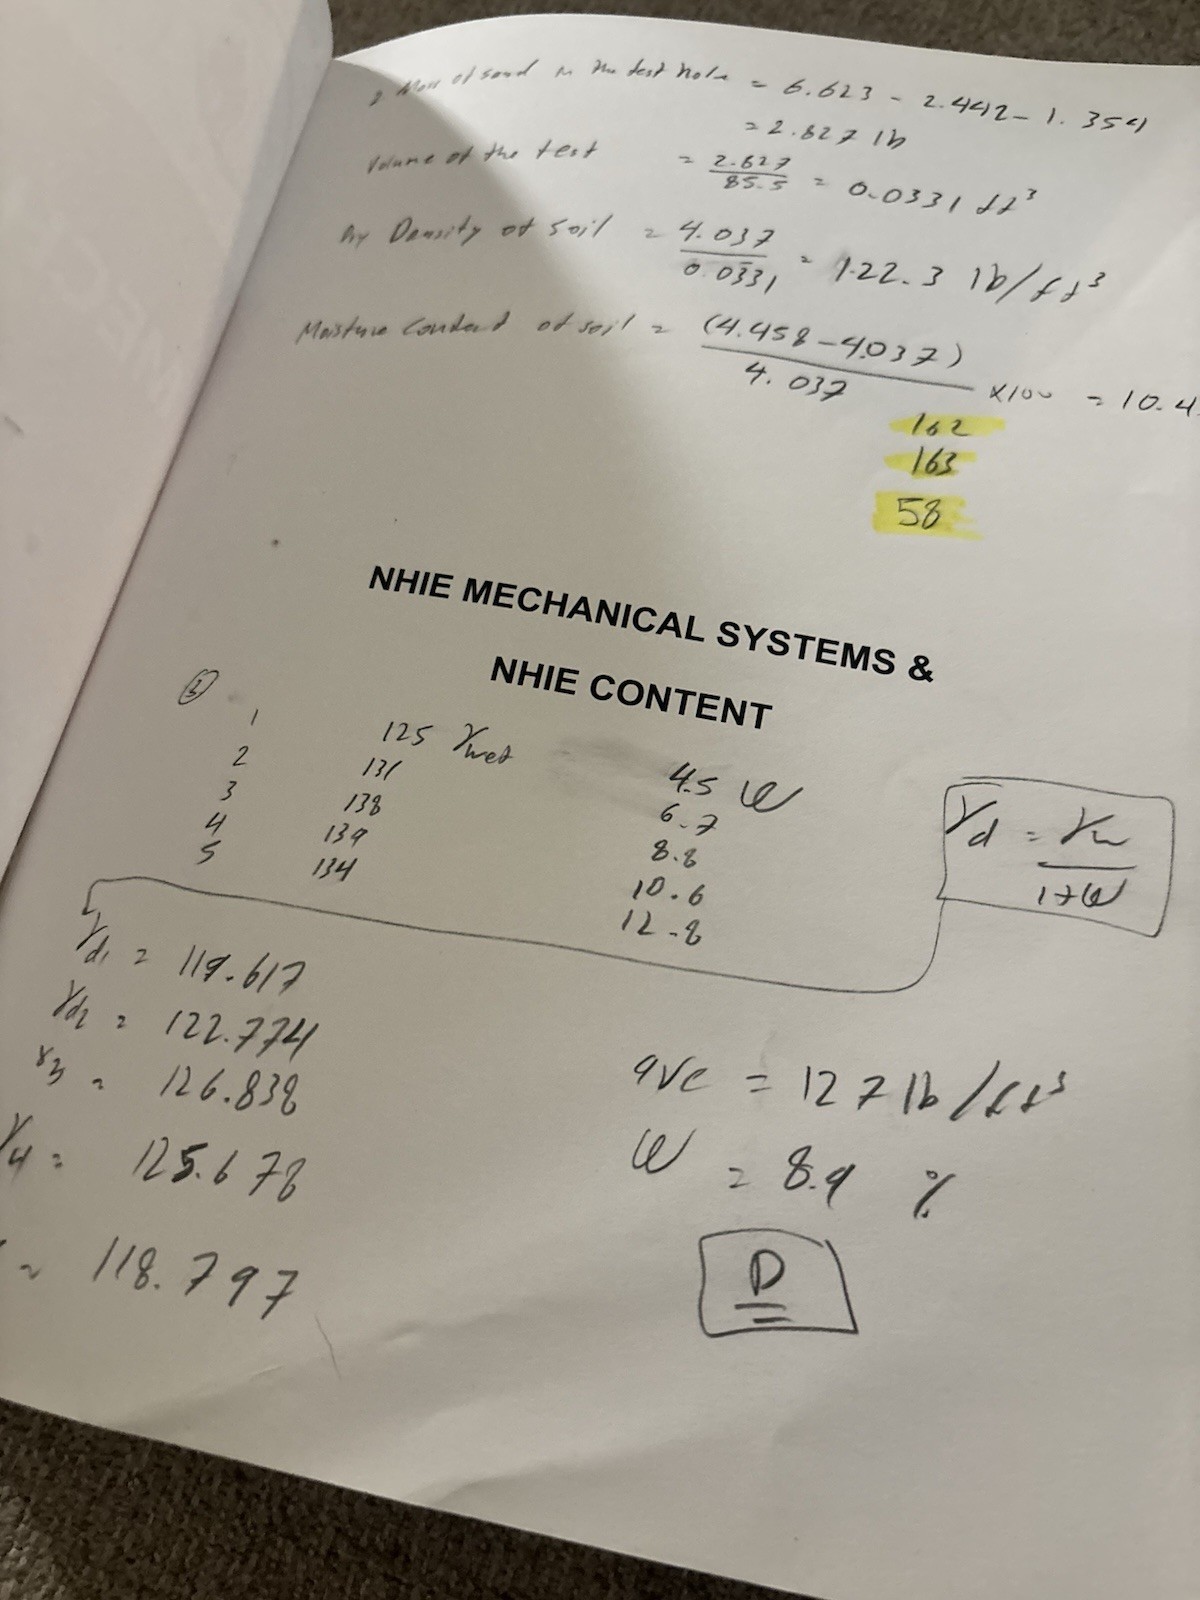 Mass of sand in the test hole = 6.623 - 2.442 - 1.354
= 2.827 lb
Volume of the test = 2.827 / 85.5 = 0.0331 ft³
Dry Density of soil = 4.037 / 0.0331 = 122.3 lb/ft³
Moisture Content of soil = (4.458 - 4.037) / 4.037 x100 = 10.4
162
163
58
NHIE MECHANICAL SYSTEMS &
NHIE CONTENT
③
1 125 γwet 4.5 ω
2 131 6.7
3 138 8.8
4 139 10.6
5 134 12.8
γd = γw / 1+ω
γd1 = 119.617
γd2 = 122.774
γ3 = 126.838
γ4 = 125.678
= 118.797
ave = 127 lb/ft³
ω = 8.9 %
D